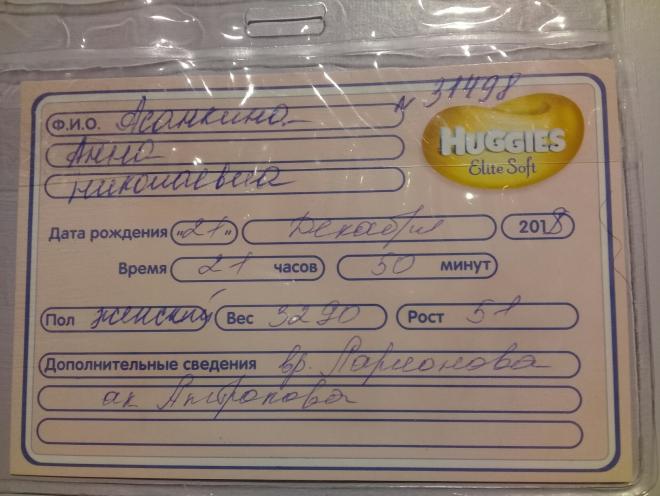 № 31498
Ф.И.О. Асанкина
Анна
Николаевна
HUGGIES
Elite Soft
Дата рождения "21" Декабря 2018
Время 21 часов 50 минут
Пол женский Вес 3290 Рост 51
Дополнительные сведения вр. Ларионова
ак Антропова